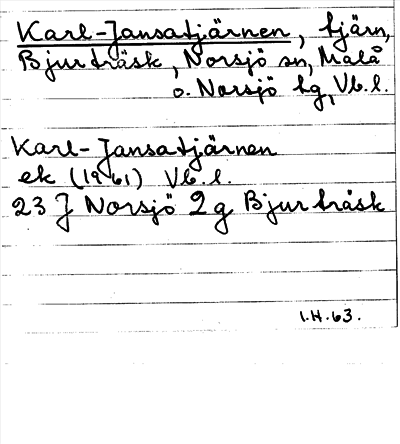 Karl-Jansatjärnen, tjärn,
Bjurträsk, Norsjö sn, Malå
o. Norsjö tg, Vb. l.
Karl-Jansatjärnen
ek (1961) Vb. l.
23 J Norsjö 2 g Bjurträsk
I.H.63.